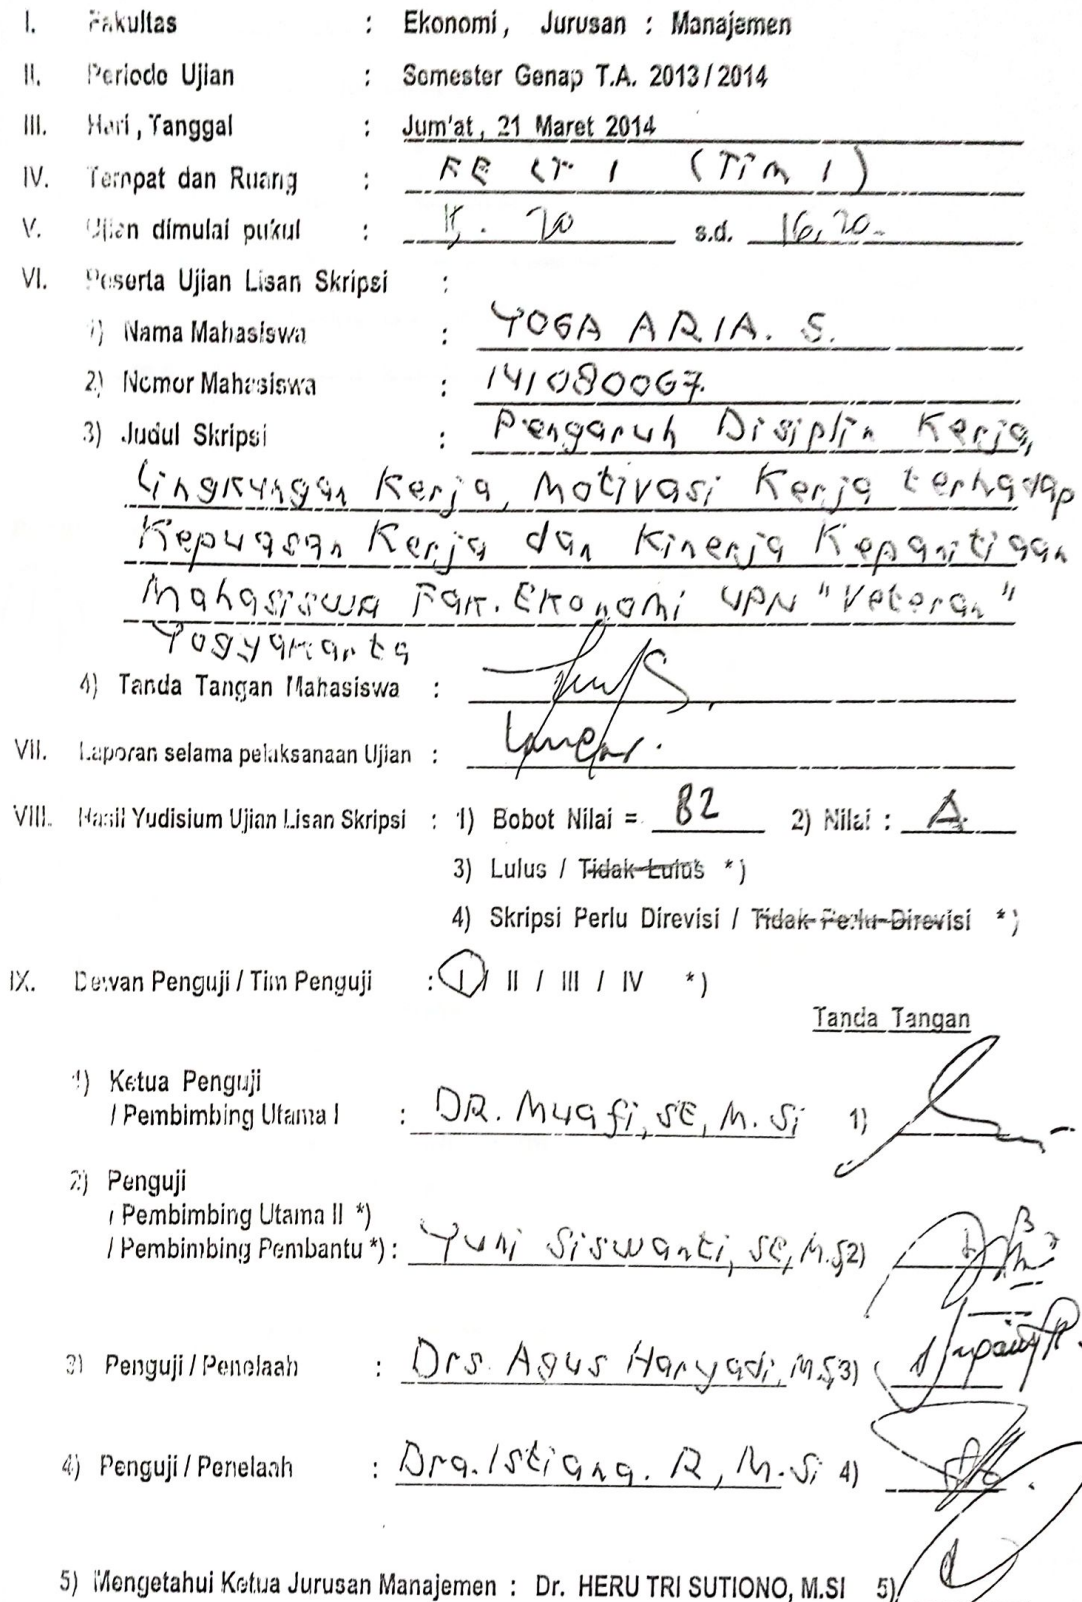 I. Fakultas : Ekonomi, Jurusan : Manajemen
II. Periode Ujian : Semester Genap T.A. 2013/2014
III. Hari, Tanggal : Jum'at, 21 Maret 2014
IV. Tempat dan Ruang : FE LT 1 (TIM 1)
V. Ujian dimulai pukul : 20 s.d. 16,20.
VI. Peserta Ujian Lisan Skripsi :
1) Nama Mahasiswa : YOGA ARIA. S.
2) Nomor Mahasiswa : 141080067.
3) Judul Skripsi : Pengaruh Disiplin Kerja,
Lingkungan Kerja, Motivasi Kerja terhadap
Kepuasan Kerja dan Kinerja Kepanitiaan
Mahasiswa Fak. Ekonomi UPN "Veteran"
Yogyakarta
4) Tanda Tangan Mahasiswa :
VII. Laporan selama pelaksanaan Ujian : Lancar.
VIII. Hasil Yudisium Ujian Lisan Skripsi : 1) Bobot Nilai = 82 2) Nilai : A
3) Lulus / Tidak Lulus *)
4) Skripsi Perlu Direvisi / Tidak Perlu Direvisi *)
IX. Dewan Penguji / Tim Penguji : I / II / III / IV *)
Tanda Tangan
1) Ketua Penguji
/ Pembimbing Utama I : DR. Muafi, SE, M. Si 1)
2) Penguji
/ Pembimbing Utama II *)
/ Pembimbing Pembantu *) : Yuni Siswanti, SE, M.S 2)
3) Penguji / Penelaah : Drs. Agus Haryadi, M.S 3)
4) Penguji / Penelaah : Dra. Istiana. R, M.Si 4)
5) Mengetahui Ketua Jurusan Manajemen : Dr. HERU TRI SUTIONO, M.SI 5)